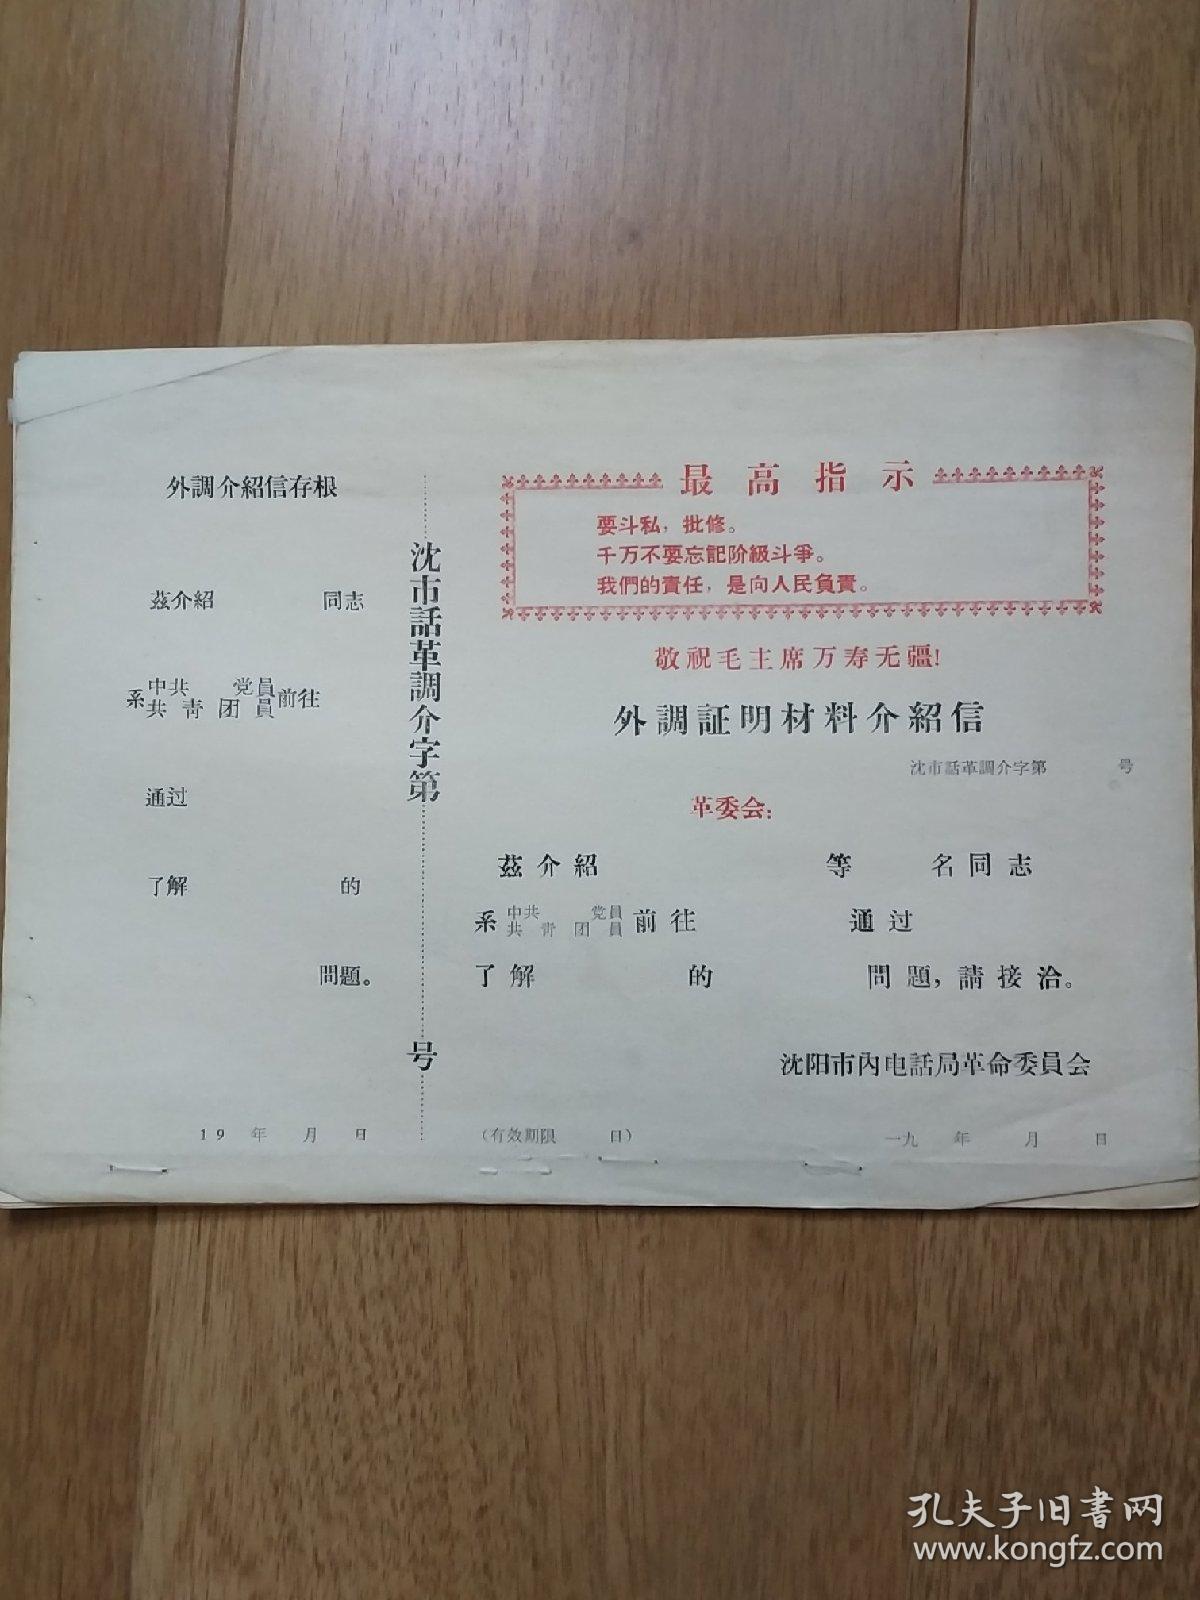 外調介紹信存根
茲介紹 同志
系 中共 党員 前往
共青团員
通过
了解 的
問題。
19 年 月 日
沈市話革調介字第 号
最高指示
要斗私，批修。
千万不要忘記阶級斗爭。
我們的責任，是向人民負責。
敬祝毛主席万寿无疆！
外調証明材料介紹信
沈市話革調介字第 号
革委会：
茲介紹 等 名同志
系 中共 党員 前往 通过
共青团員
了解 的 問題，請接洽。
沈阳市內电話局革命委員会
（有效期限 日） 一九 年 月 日
孔夫子旧書网
www.kongfz.com